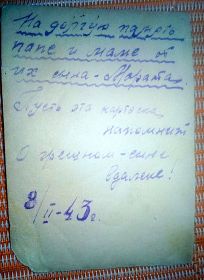 На дорогую память
папе и маме от
их сына - Марата.
Пусть эта карточка
напомнит
О грешном - сыне
вдалике!
8/II-43 г.